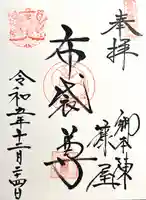 奉拝
御本陣
藤屋
布袋尊
令和五年十二月二十四日